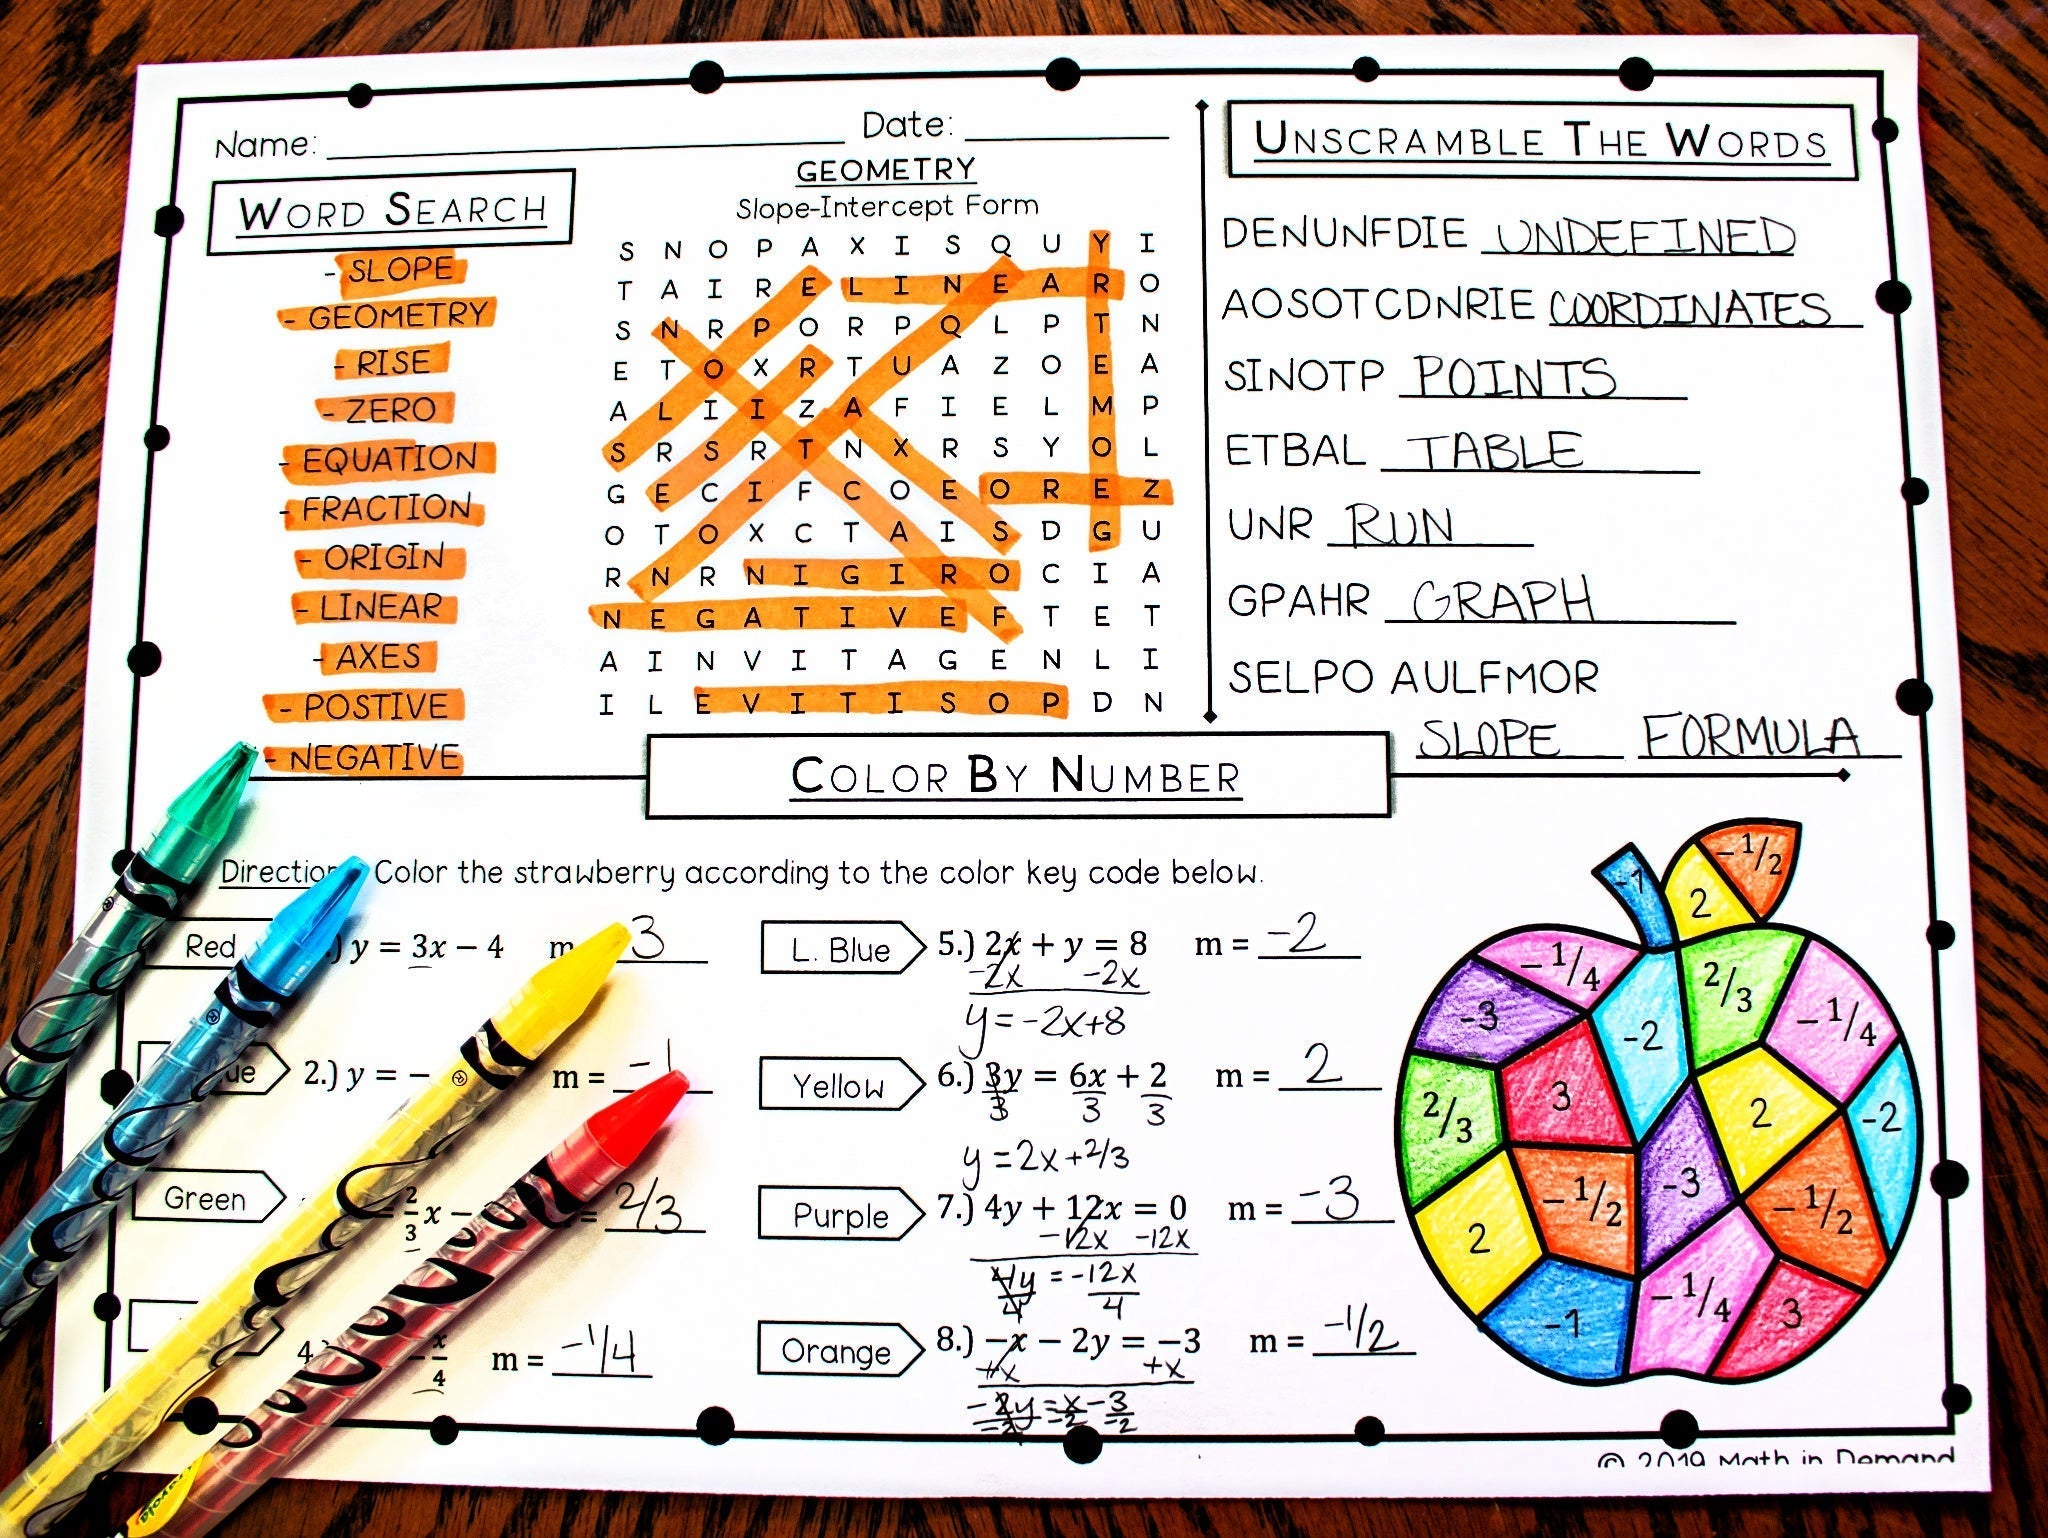 Name: Date:
GEOMETRY
Slope-Intercept Form
WORD SEARCH
- SLOPE
- GEOMETRY
- RISE
- ZERO
- EQUATION
- FRACTION
- ORIGIN
- LINEAR
- AXES
- POSTIVE
- NEGATIVE
S N O P A X I S Q U Y I
T A I R E L I N E A R O
S N R P O R P Q L P T N
E T O X R T U A Z O E A
A L I I Z A F I E L M P
S R S R T N X R S Y O L
G E C I F C O E O R E Z
O T O X C T A I S D G U
R N R N I G I R O C I A
N E G A T I V E F T E T
A I N V I T A G E N L I
I L E V I T I S O P D N
UNSCRAMBLE THE WORDS
DENUNFDIE UNDEFINED
AOSOTCDNRIE COORDINATES
SINOTP POINTS
ETBAL TABLE
UNR RUN
GPAHR GRAPH
SELPO AULFMOR
SLOPE FORMULA
COLOR BY NUMBER
Color the strawberry according to the color key code below.
Red y = 3x − 4 m 3
2.) y = − m = -1
Green 2/3 x − = 2/3
4 x/4 m = -1/4
L. Blue 5.) 2x + y = 8 m = -2
-2x -2x
y = -2x+8
Yellow 6.) 3y = 6x + 2 m = 2
3 3 3
y = 2x+2/3
Purple 7.) 4y + 12x = 0 m = -3
-12x -12x
4y = -12x
4 4
Orange 8.) −x − 2y = −3 m = -1/2
+x +x
-2y = x - 3
-2 -2 -2
-1
2
-1/2
-1/4
2/3
-1/4
-3
-2
2/3
3
2
-2
2
-1/2
-3
-1/2
-1
-1/4
3
© 2019 Math in Demand